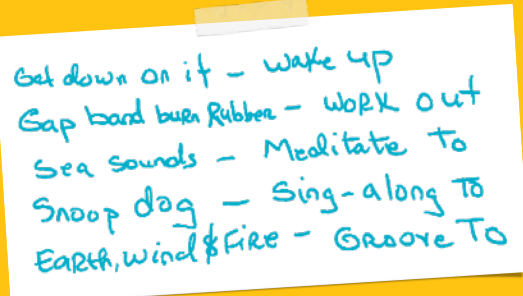 Get down on it - wake up
Gap band burn Rubber - WORK out
Sea sounds - Meditate To
Snoop dog - Sing-along To
EaRth, Wind & FiRe - GROOVE TO